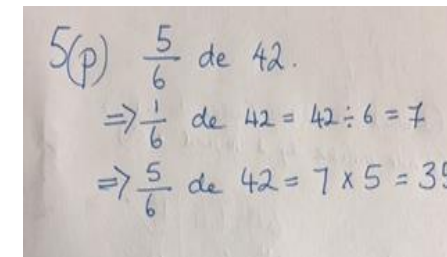 5(p) 5/6 de 42.
⇒ 1/6 de 42 = 42 ÷ 6 = 7
⇒ 5/6 de 42 = 7 x 5 = 35